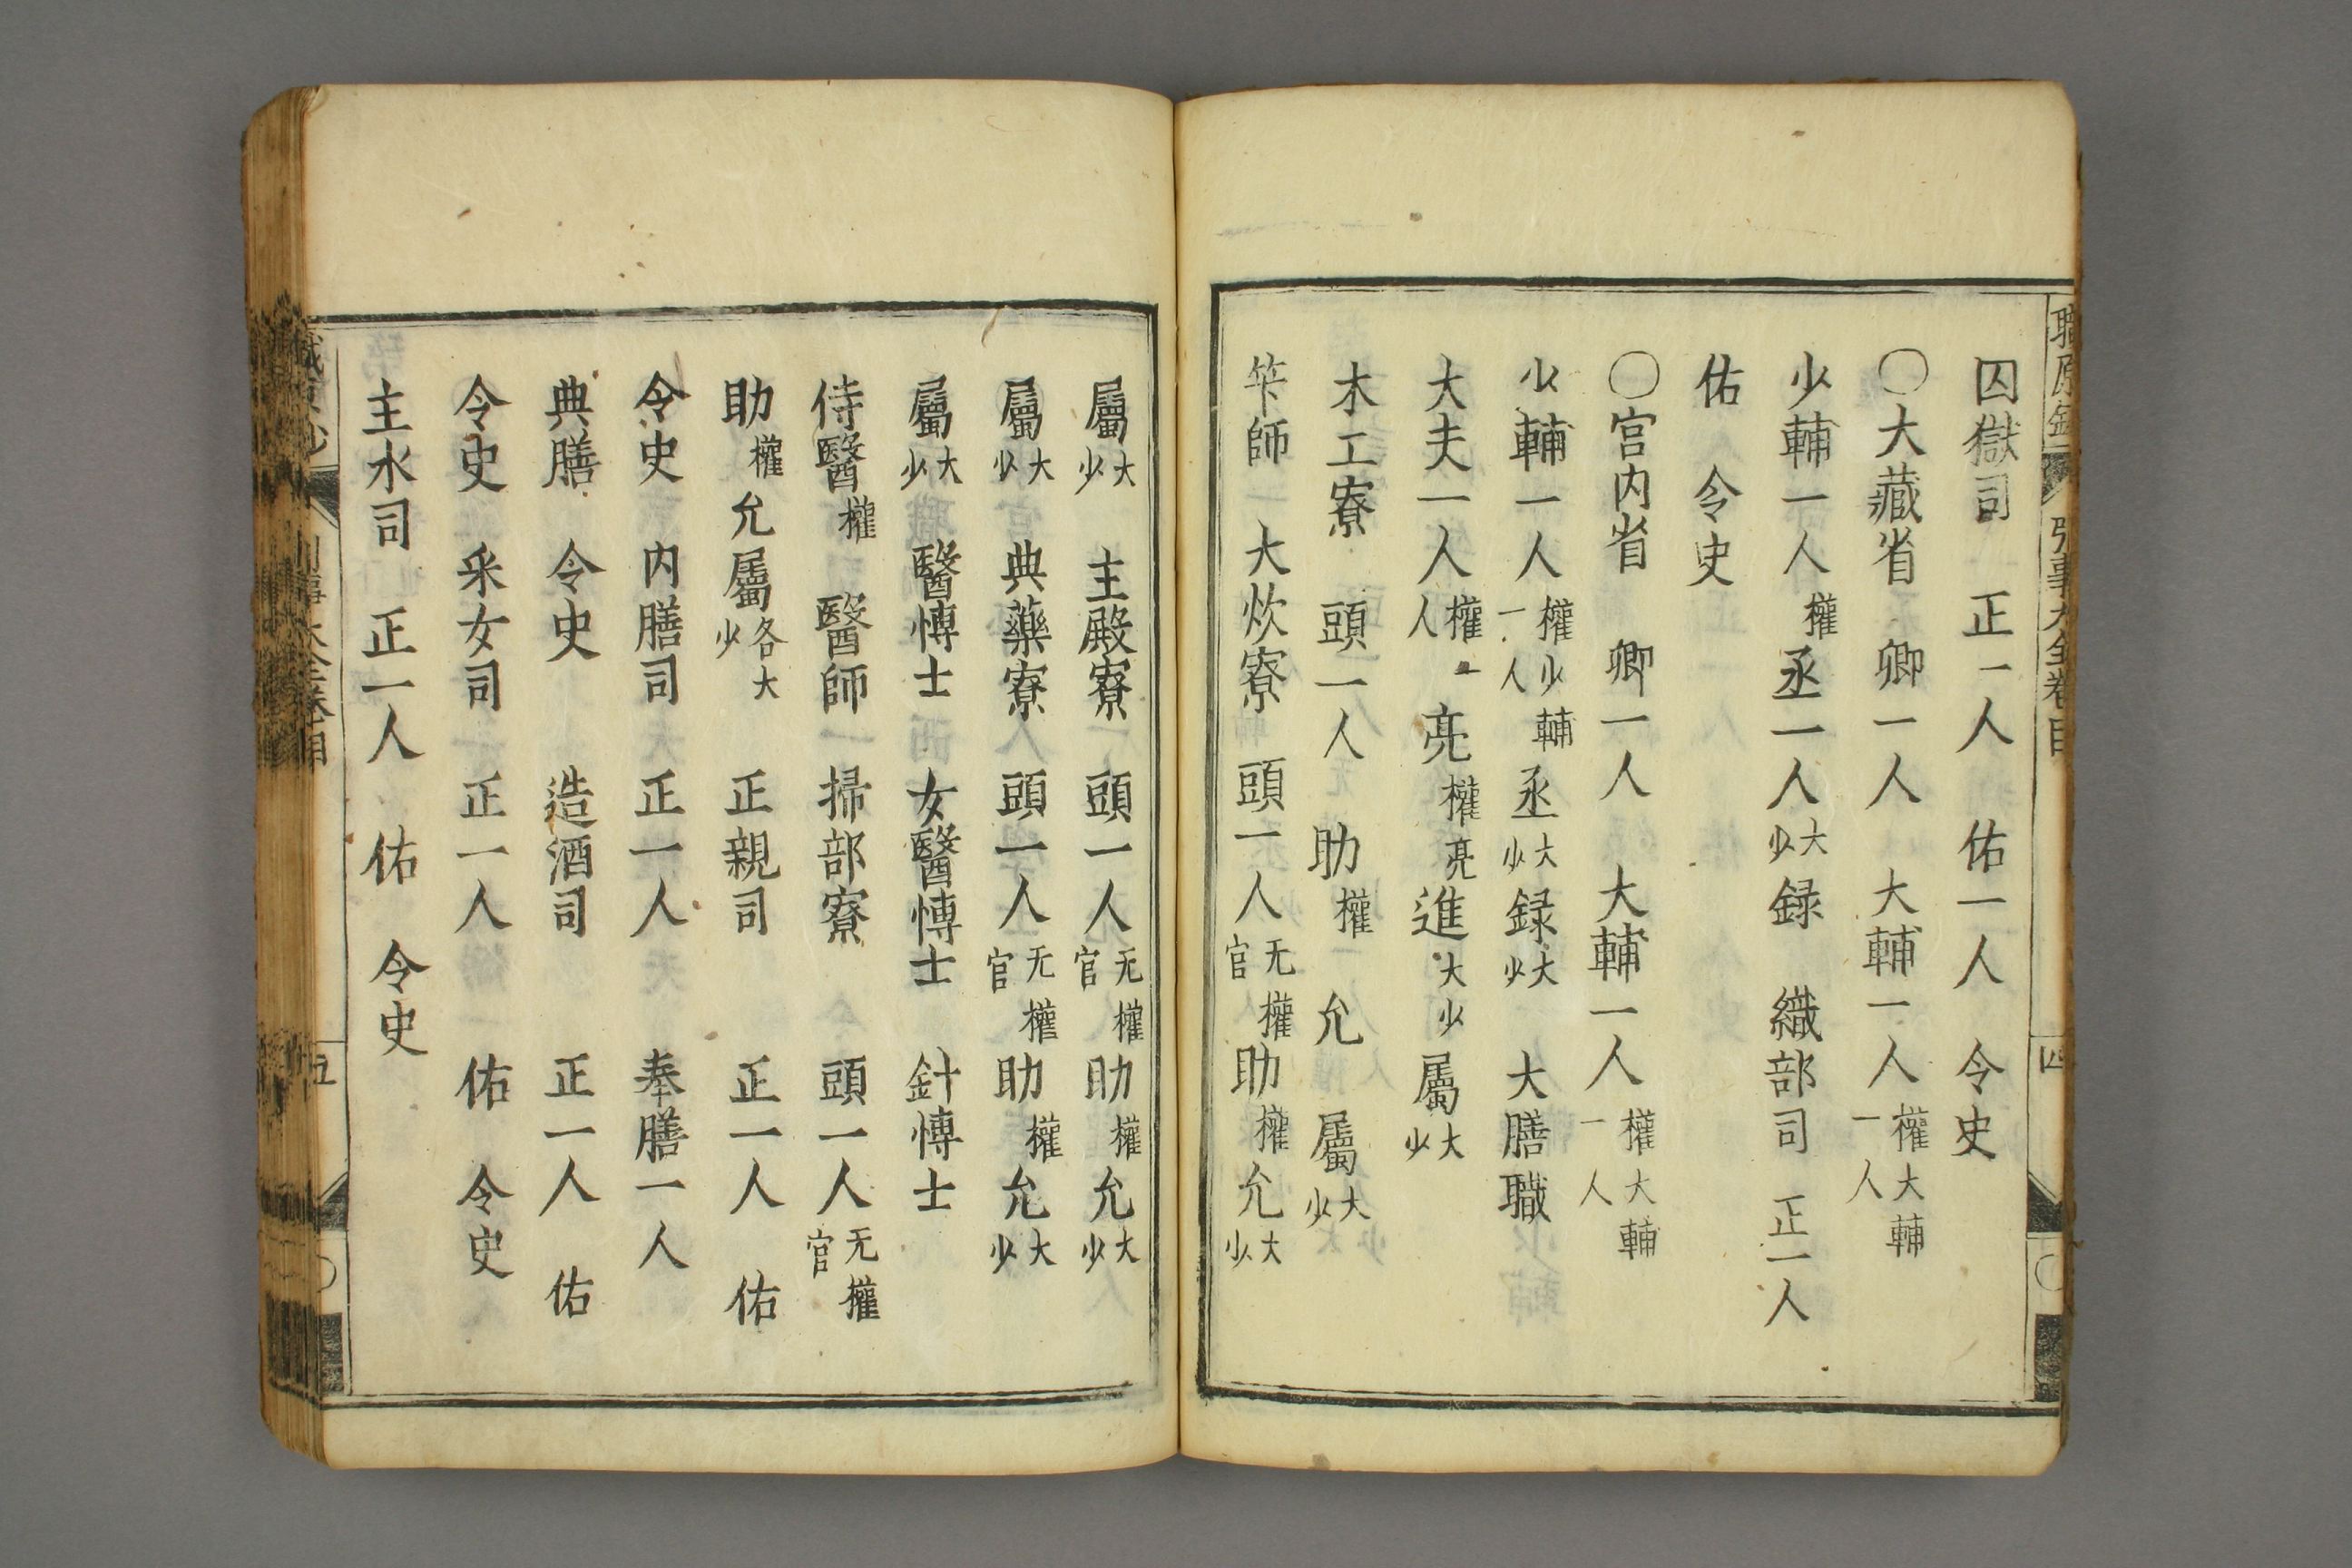 職原鈔 引事大全卷目 四
囚獄司 正一人 佑一人 令史
〇大藏省 卿一人 大輔一人 權大輔一人
少輔一人 權 丞一人 大少 録 織部司 正一人
佑 令史
〇宮内省 卿一人 大輔一人 權大輔一人
少輔一人 權少輔一人 丞 大少 録 大少 大膳職
大夫一人 權一人 亮 權亮 進 大少 屬 大少
木工寮 頭一人 助 權 允 屬 大少
笇師 大炊寮 頭一人 无權官 助 權 允 大少
屬 大少 主殿寮 頭一人 无權官 助 權 允 大少
屬 大少 典藥寮 頭一人 无權官 助 權 允 大少
屬 大少 醫愽士 女醫愽士 針愽士
侍醫 權 醫師 掃部寮 頭一人 无權官
助 權 允 屬 各大少 正親司 正一人 佑
令史 内膳司 正一人 奉膳一人
典膳 令史 造酒司 正一人 佑
令史 采女司 正一人 佑 令史
主水司 正一人 佑 令史
五